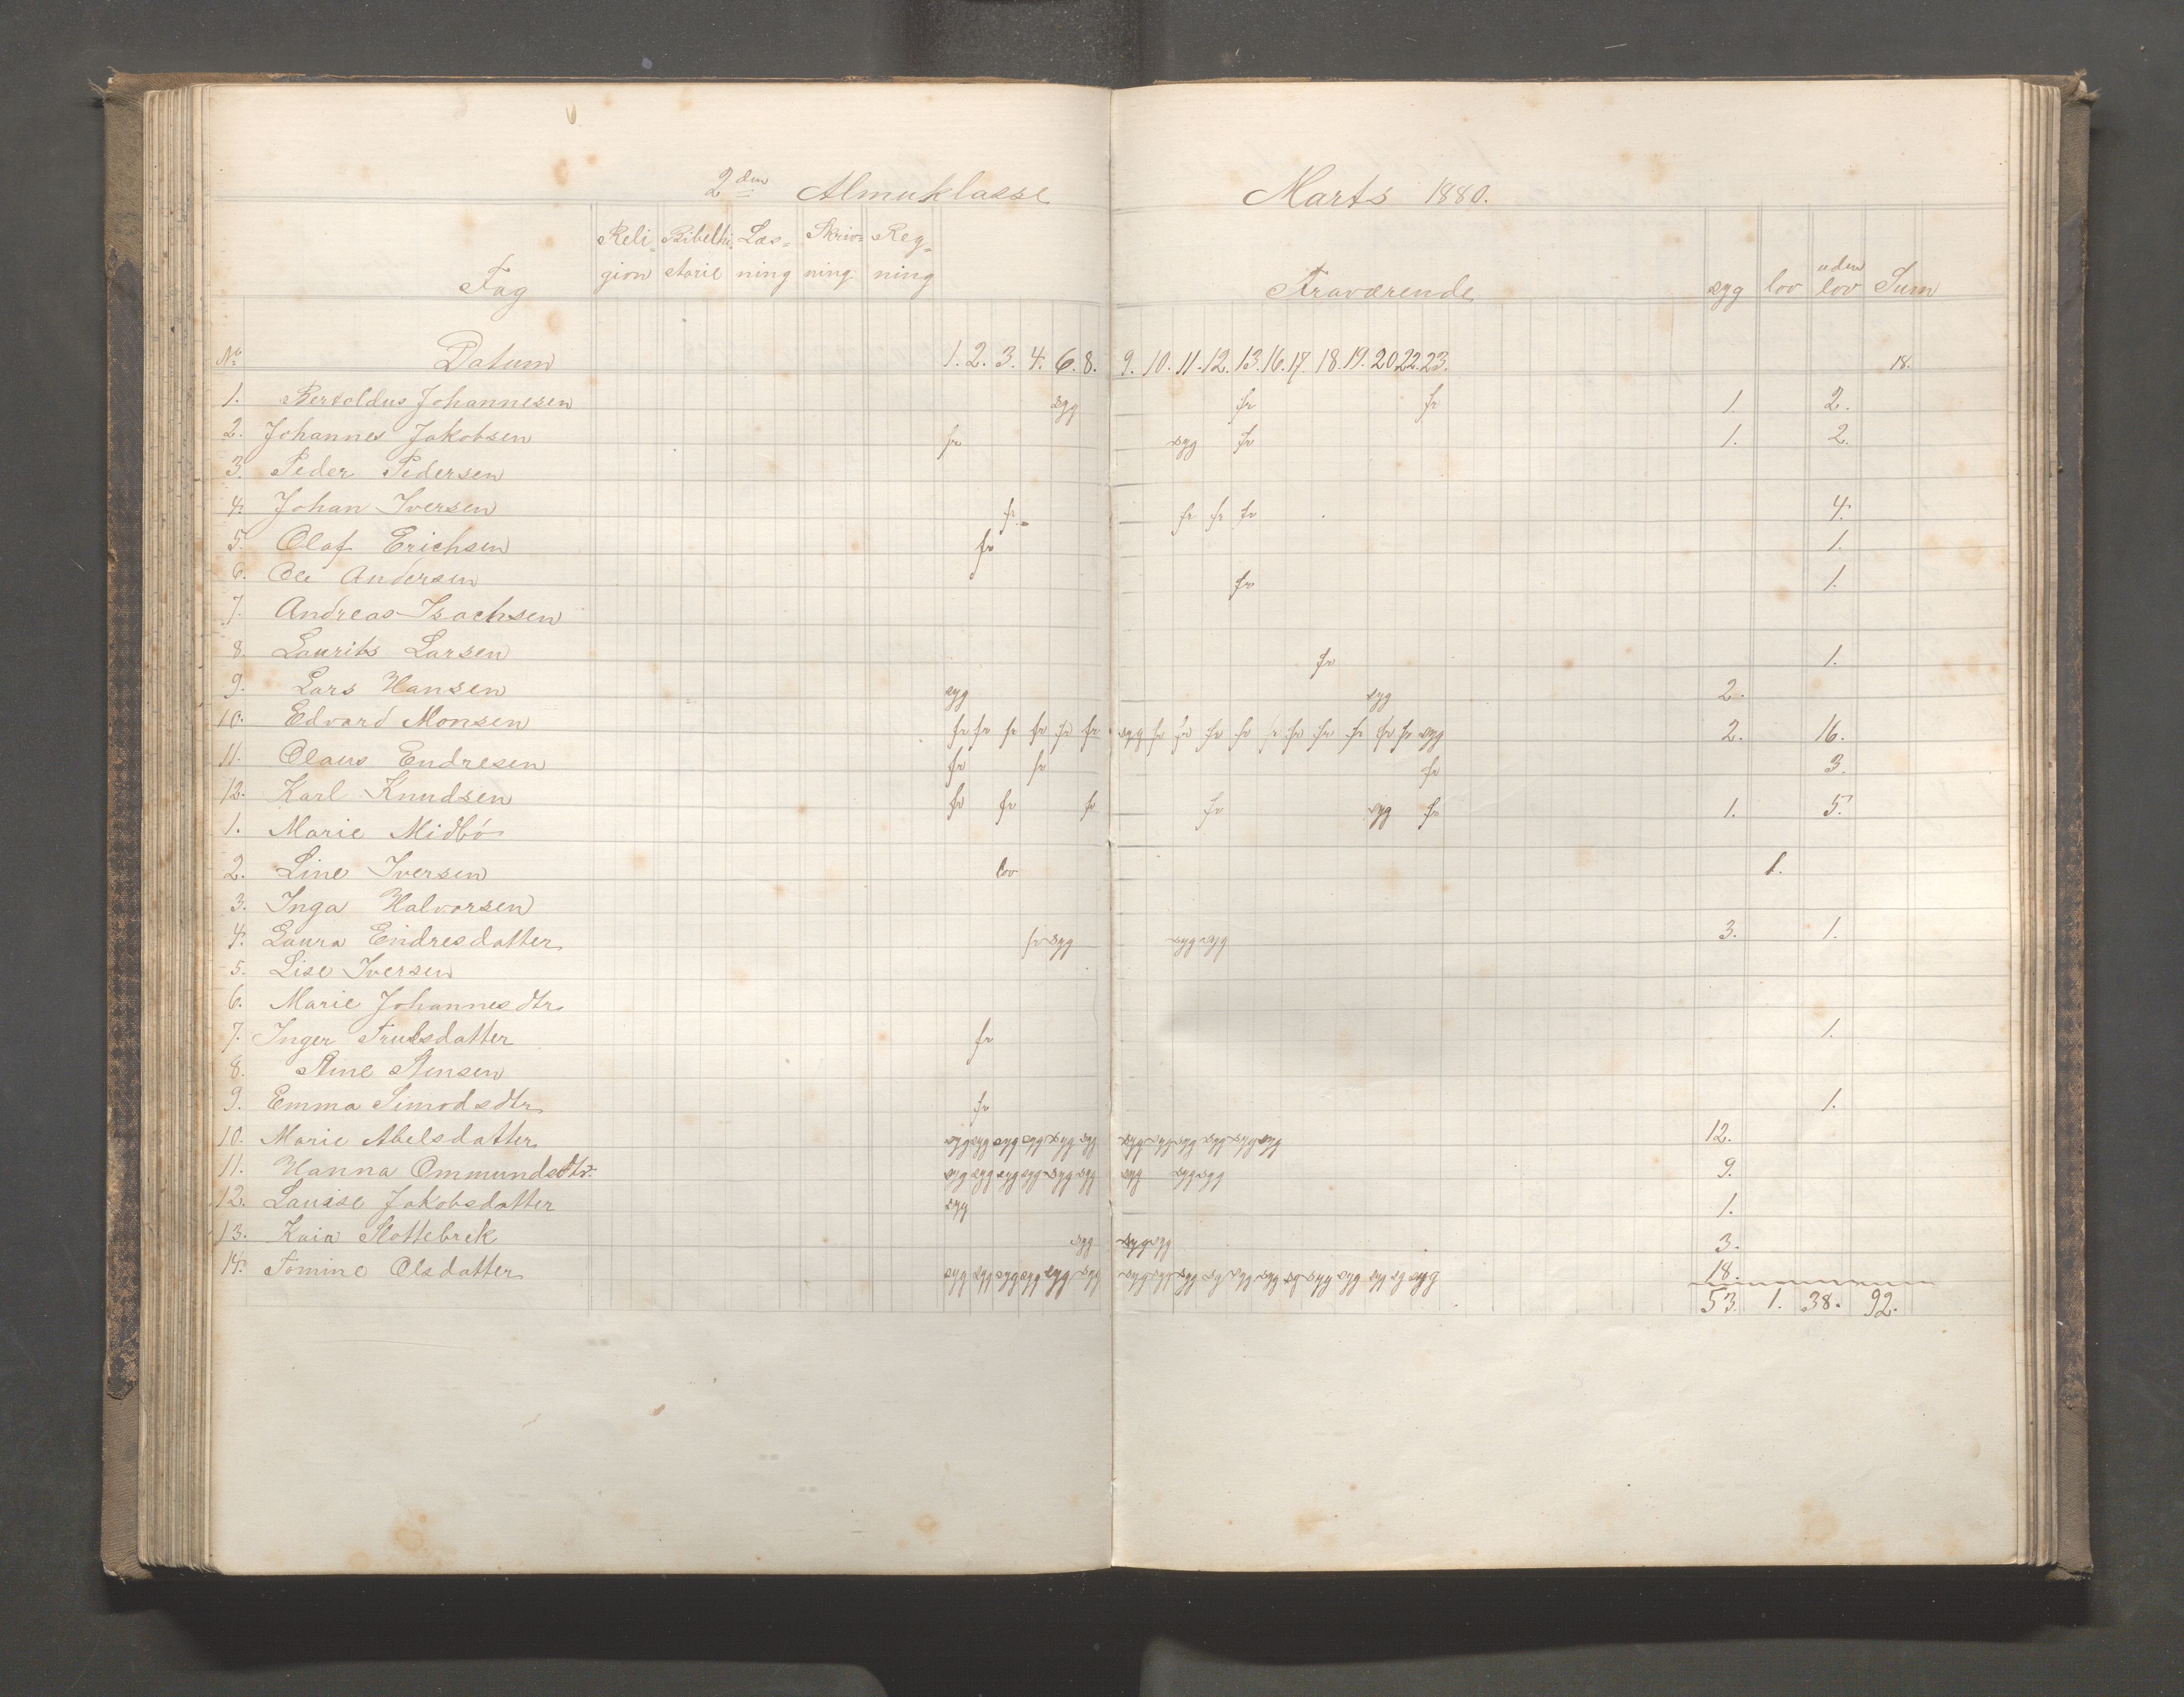 2den Almuklasse Marts 1880.
Fag Reli=gion Bibelhi=storie Læs=ning Skriv=ning Reg=ning Fraværende syg lov uden lov Sum
No Datum 1. 2. 3. 4. 6. 8. 9. 10. 11. 12. 13. 16. 17. 18. 19. 20. 22. 23. 18.
1. Bertoldus Johannesen syg fr fr 1. 2.
2. Johannes Jakobsen fr syg fr 1. 2.
3. Peder Pedersen
4. Johan Iversen fr fr fr fr 4.
5. Olaf Erichsen fr 1.
6. Ole Andersen fr 1.
7. Andreas Isachsen
8. Laurits Larsen fr 1.
9. Lars Hansen syg syg 2.
10. Edvard Monsen fr fr fr fr fr fr syg fr fr fr fr fr fr fr fr fr fr syg 2. 16.
11. Olaus Endresen fr fr fr 3.
12. Karl Knudsen fr fr fr fr syg fr 1. 5.
1. Marie Midbö
2. Line Iversen lov 1.
3. Inga Halvorsen
4. Laura Endresdatter fr syg syg syg 3. 1.
5. Lise Iversen
6. Marie Johannesdtr
7. Inger Trulsdatter fr 1.
8. Stine Stensen
9. Emma Simodsdtr fr 1.
10. Marie Abelsdatter syg syg syg syg syg syg syg syg syg syg syg syg 12.
11. Hanna Ommundsdtr. syg syg syg syg syg syg syg syg syg 9.
12. Lauise Jakobsdatter syg 1.
13. Kaia Slottebrek syg syg syg 3.
14. Tomine Olsdatter syg syg syg syg syg syg syg syg syg syg syg syg syg syg syg syg syg syg 18.
53. 1. 38. 92.